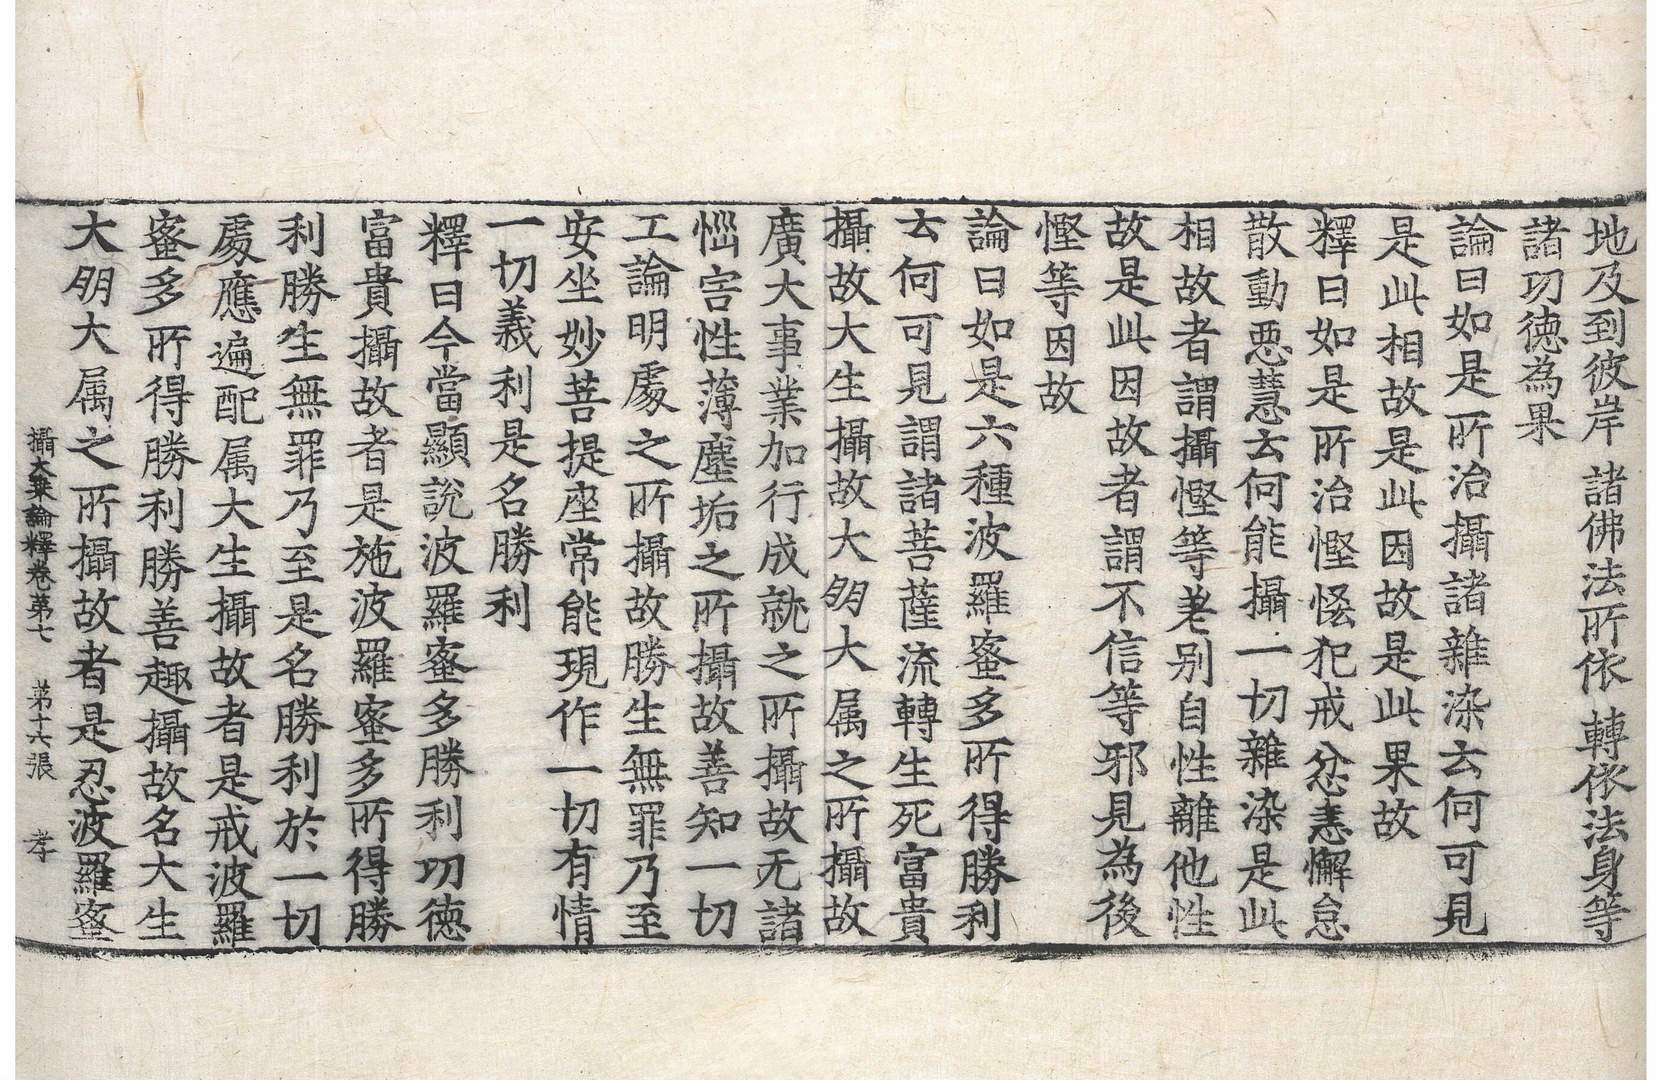 地及到彼岸 諸佛法所依 轉依法身等
諸功德為果
論曰如是所治攝諸雜染云何可見
是此相故是此因故是此果故
釋曰如是所治慳悋犯戒忿恚懈怠
散動惡慧云何能攝一切雜染是此
相故者謂攝慳等差别自性離他性
故是此因故者謂不信等邪見為後
慳等因故
論曰如是六種波羅蜜多所得勝利
云何可見謂諸菩薩流轉生死富貴
攝故大生攝故大朋大属之所攝故
廣大事業加行成就之所攝故无諸
惱害性薄塵垢之所攝故善知一切
工論明處之所攝故勝生無罪乃至
安坐妙菩提座常能現作一切有情
一切義利是名勝利
釋曰今當顯說波羅蜜多勝利功德
富貴攝故者是施波羅蜜多所得勝
利勝生無罪乃至是名勝利於一切
處應遍配属大生攝故者是戒波羅
蜜多所得勝利勝善趣攝故名大生
大朋大属之所攝故者是忍波羅蜜
攝大乘論釋卷第七 第十六張 孝